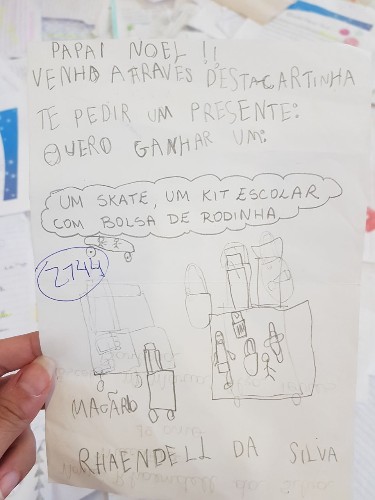 PAPAI NOEL !!
VENHO ATRAVÉS DESTACARTINHA
TE PEDIR UM PRESENTE:
QUERO GANHAR UM:
UM SKATE, UM KIT ESCOLAR
COM BOLSA DE RODINHA
2744
RHAENDELL DA SILVA